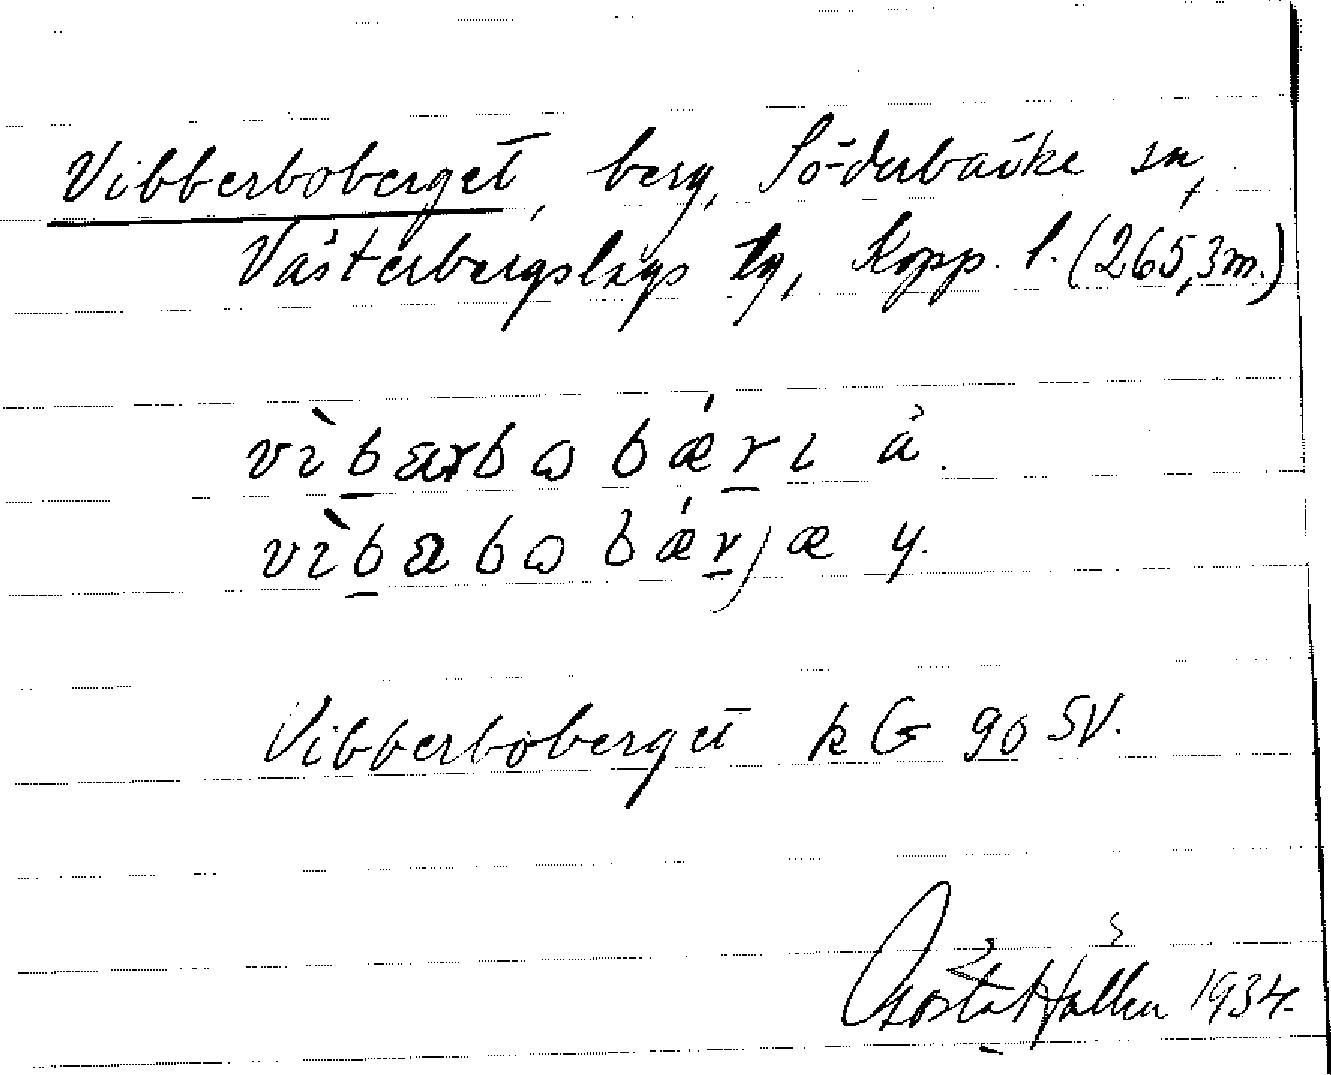 Vibberboberget, berg, Söderbärke sn,
Västerbergslags tg, Kopp. l. (265,3 m.)
vìbærbωbǽrı ä.
vìbabωbǽrjæ y.
Vibberboberget kG 90 SV.
Gösta Hallén 1934.